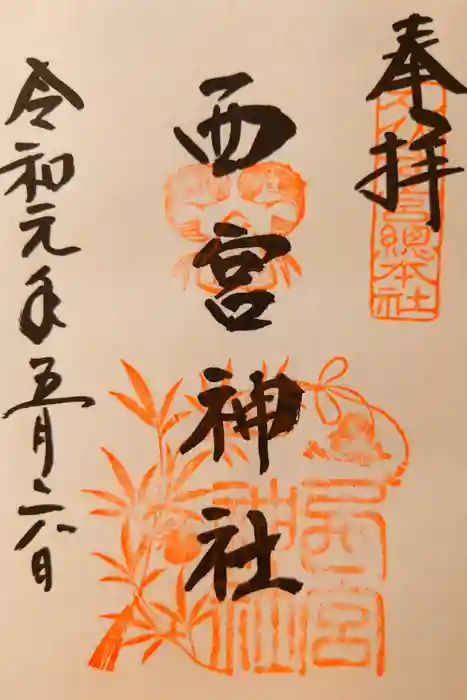 奉拝
宮總本社
西宮神社
西宮神社
令和元年五月二八日